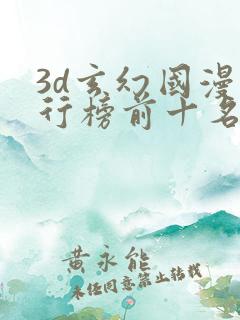 3d玄幻國漫
行榜前十名
黃永能
未任同意禁止转载